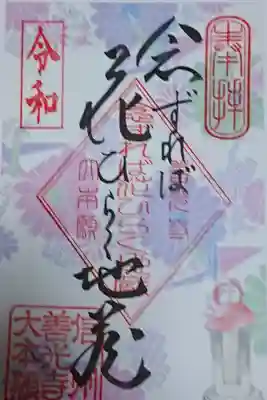 奉拝
念ずれば
花ひらく地蔵
念ずれば花ひらく地蔵
大本願
令和
信州
善光寺
大本願